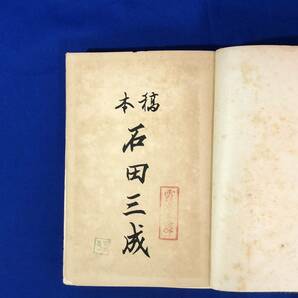 稿本
石田三成